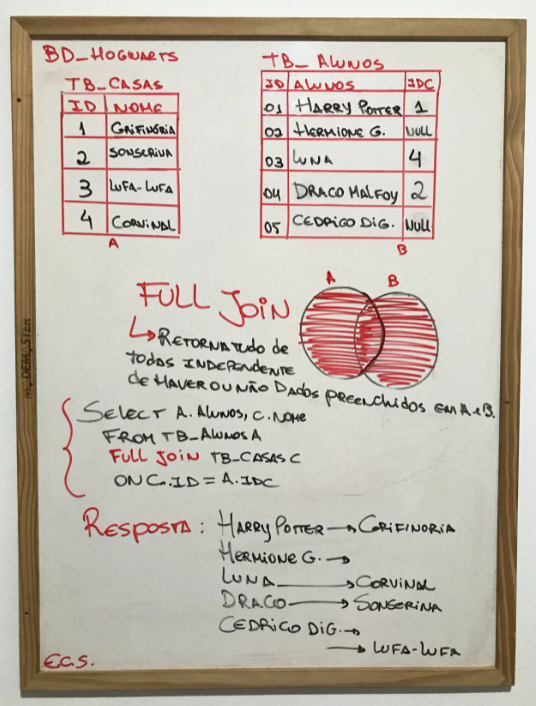 BD_HOGWARTS
TB_CASAS
ID NOME
1 GRIFINÓRIA
2 SONSERINA
3 LUFA-LUFA
4 CORVINAL
A
TB_ALUNOS
ID ALUNOS IDC
01 HARRY POTTER 1
02 HERMIONE G. NULL
03 LUNA 4
04 DRACO MALFOY 2
05 CEDRICO DIG. NULL
B
FULL JOIN
A B
RETORNA TUDO DE
TODAS INDEPENDENTE
DE HAVER OU NÃO DADOS PREENCHIDOS EM A E B.
SELECT A.ALUNOS, C.NOME
FROM TB_ALUNOS A
FULL JOIN TB_CASAS C
ON C.ID = A.IDC
RESPOSTA: HARRY POTTER → GRIFINORIA
HERMIONE G. →
LUNA → CORVINAL
DRACO → SONSERINA
CEDRICO DIG. →
→ LUFA-LUFA
E.C.S.